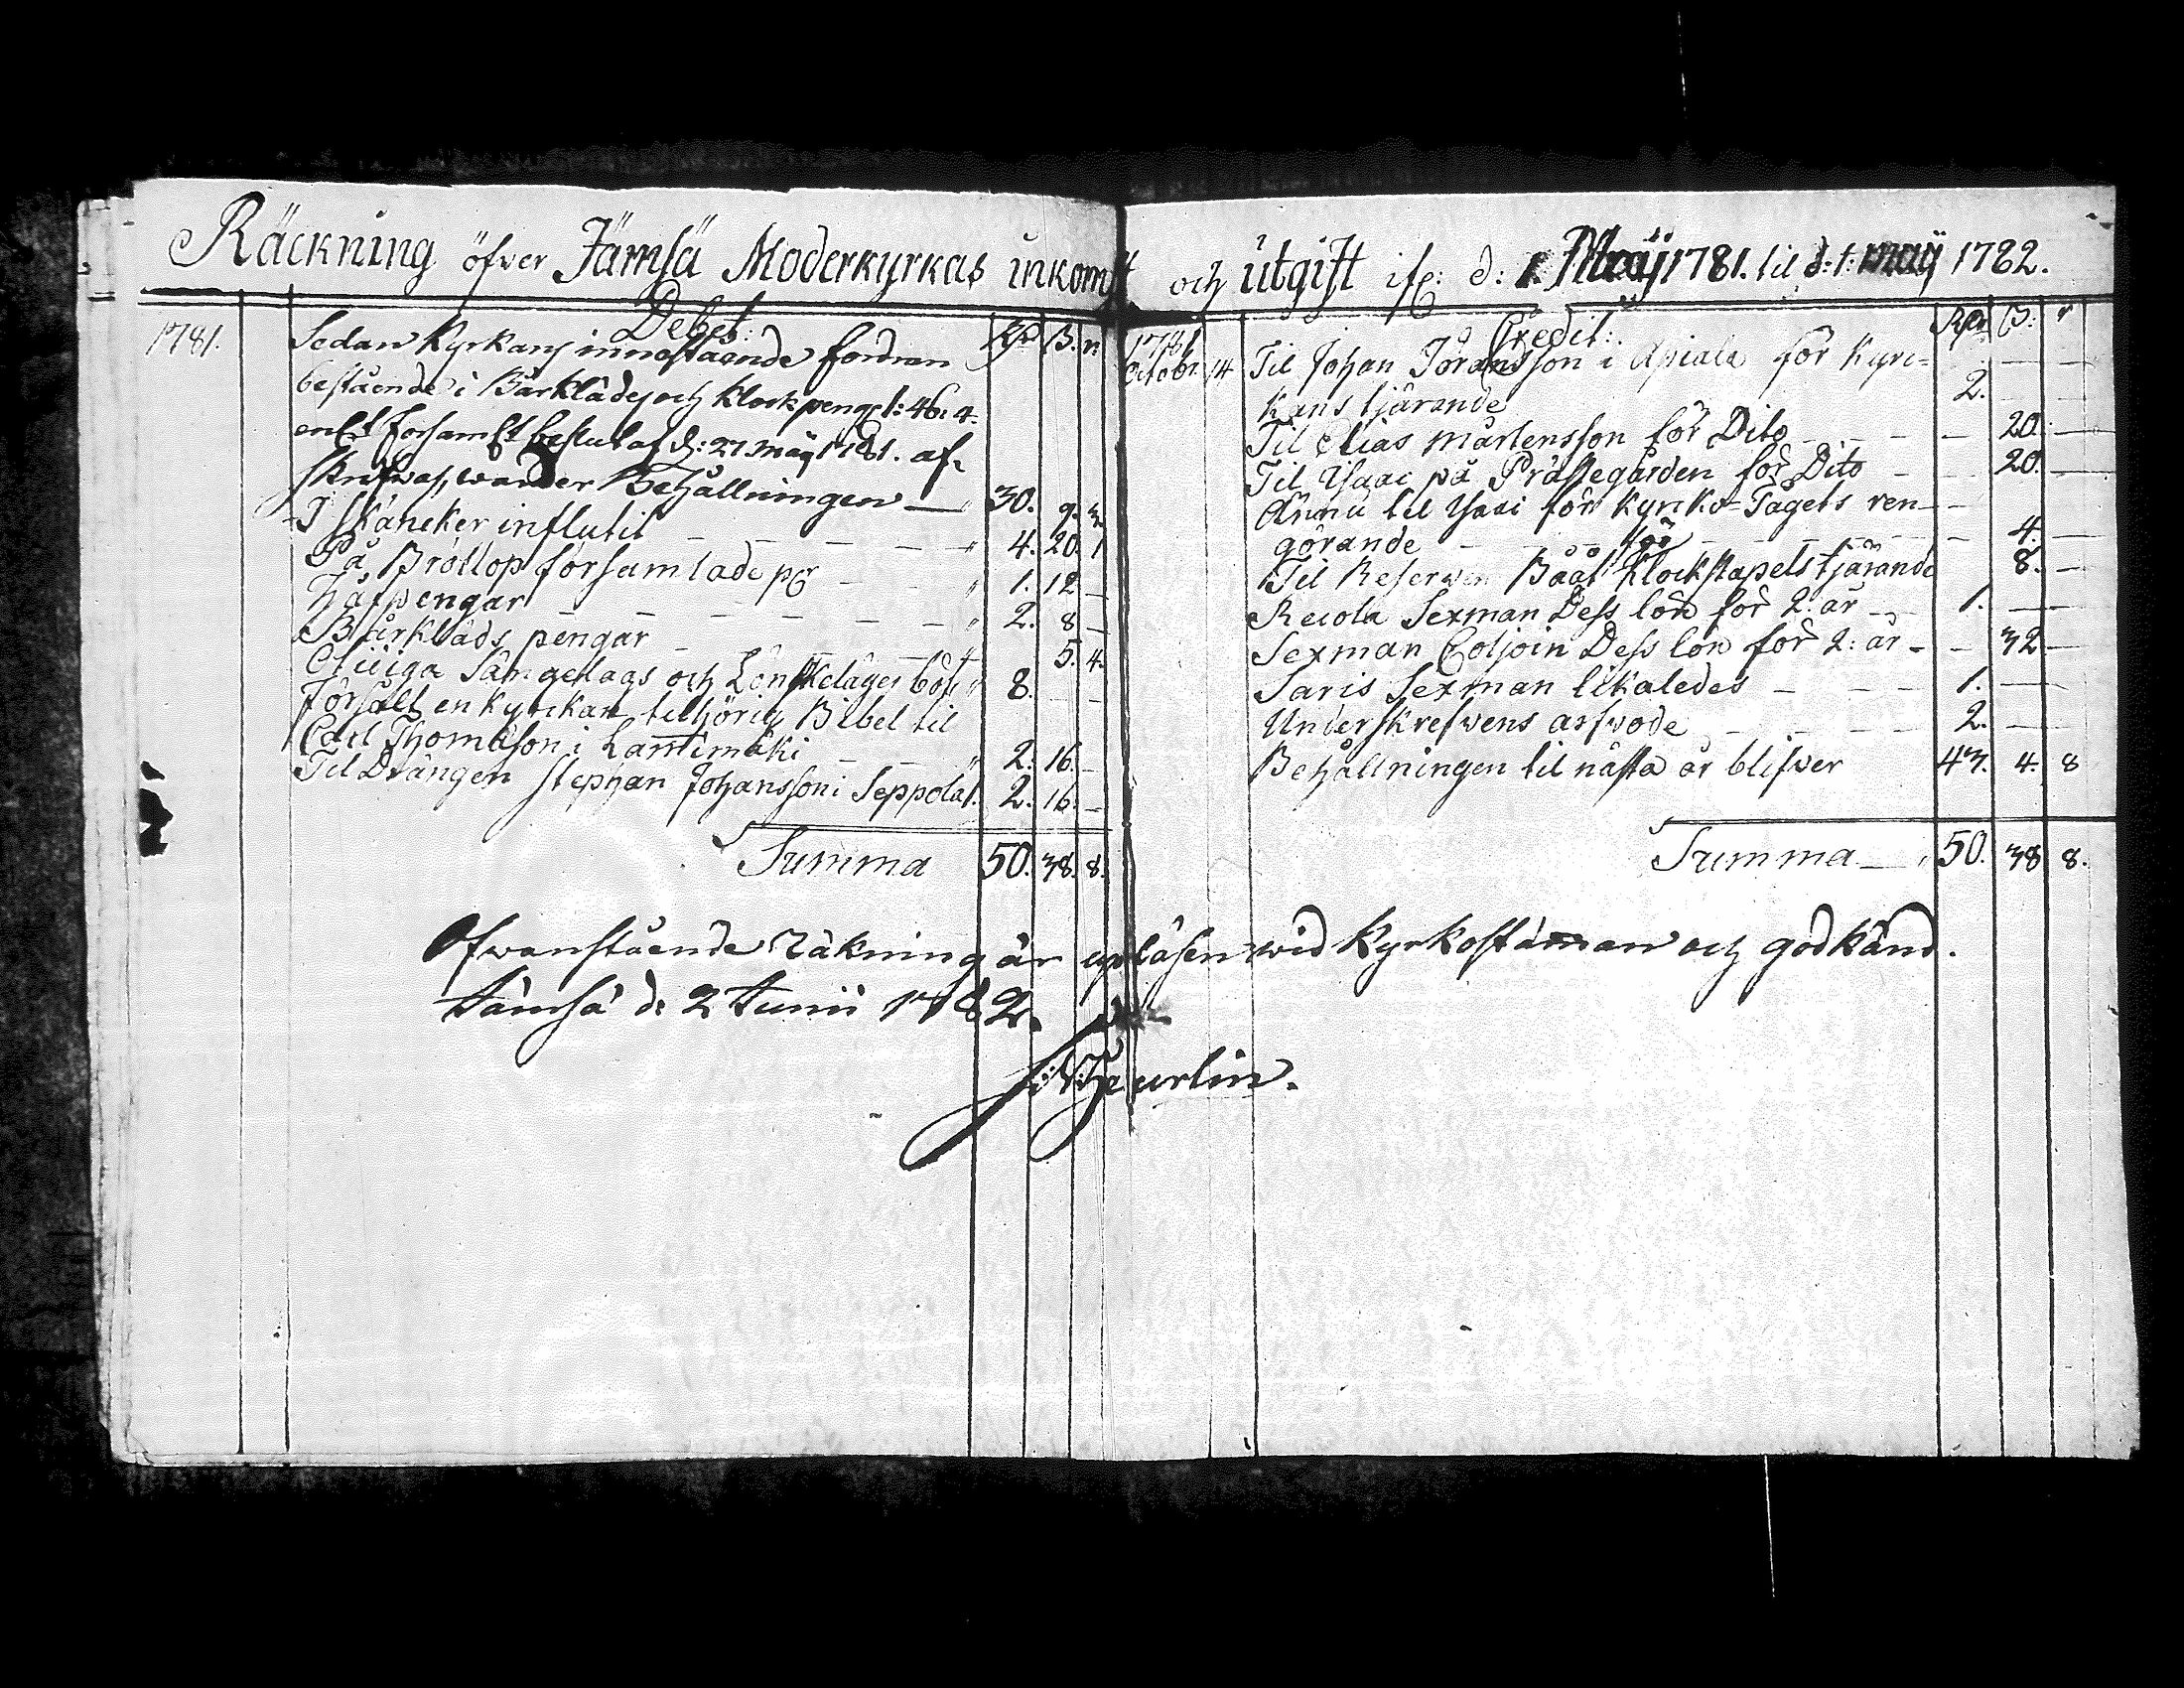 Räckning öfwer Jämsä Moderkyrkas inkomst och utgift ifr: d: 1. Maij 1781. til d: 1: maÿ 1782.
Debet:
1781. Sedan Kyrkans innestående fordran Rdr ß. r
bestående i Bårkläds och klockpeng: 46: 4.
enl:t Forsaml:s beslut af d: 27 maij 1781. af-
skrifwas, warder Behållningen 30. 9. 3
I skäncker influtit 4. 20. 1
På Bröllop församlade pgr 1. 12 —
Håfpengar 2. 8 —
Bårkläds pengar 5. 4.
Oluiga Sängelags och Lönskelägers böt 8. — —
Försålt en kyrckan tilhörig Bibel til
Carl Thomasson i Lantimäki 2. 16. —
Til Drängen Stephan Johansson i Seppola 2. 16. —
Summa 50. 38. 8.
Credit: Rdr ß: r
1781 Octobr 14 Til Johan Göransson i Apiala för kyrc-
kans tjärande 2. — —
Til Elias Mårtensson för Dito 20. —
Til Ysaac på Prästegården för Dito 20. —
Ännu til Ysaac för kyrko-Tagets ren-
görande 4. —
Til Reserwen Bååt för Klockstapels tjärande 8. —
Recola Sexman Dess lön för 2. år 1. — —
Sexman Coljoin Dess lön för 2: år — 32 —
Saris Sexman likaledes 1. — —
Underskrefwens arfwode 2. — —
Behållningen til nästa år blifwer 43. 4. 8
Summa 50. 38 8.
Ofwanstående räkning är upläsen wid Kyrkostäman och godkänd.
Jämsä d: 2 Junii 1782.